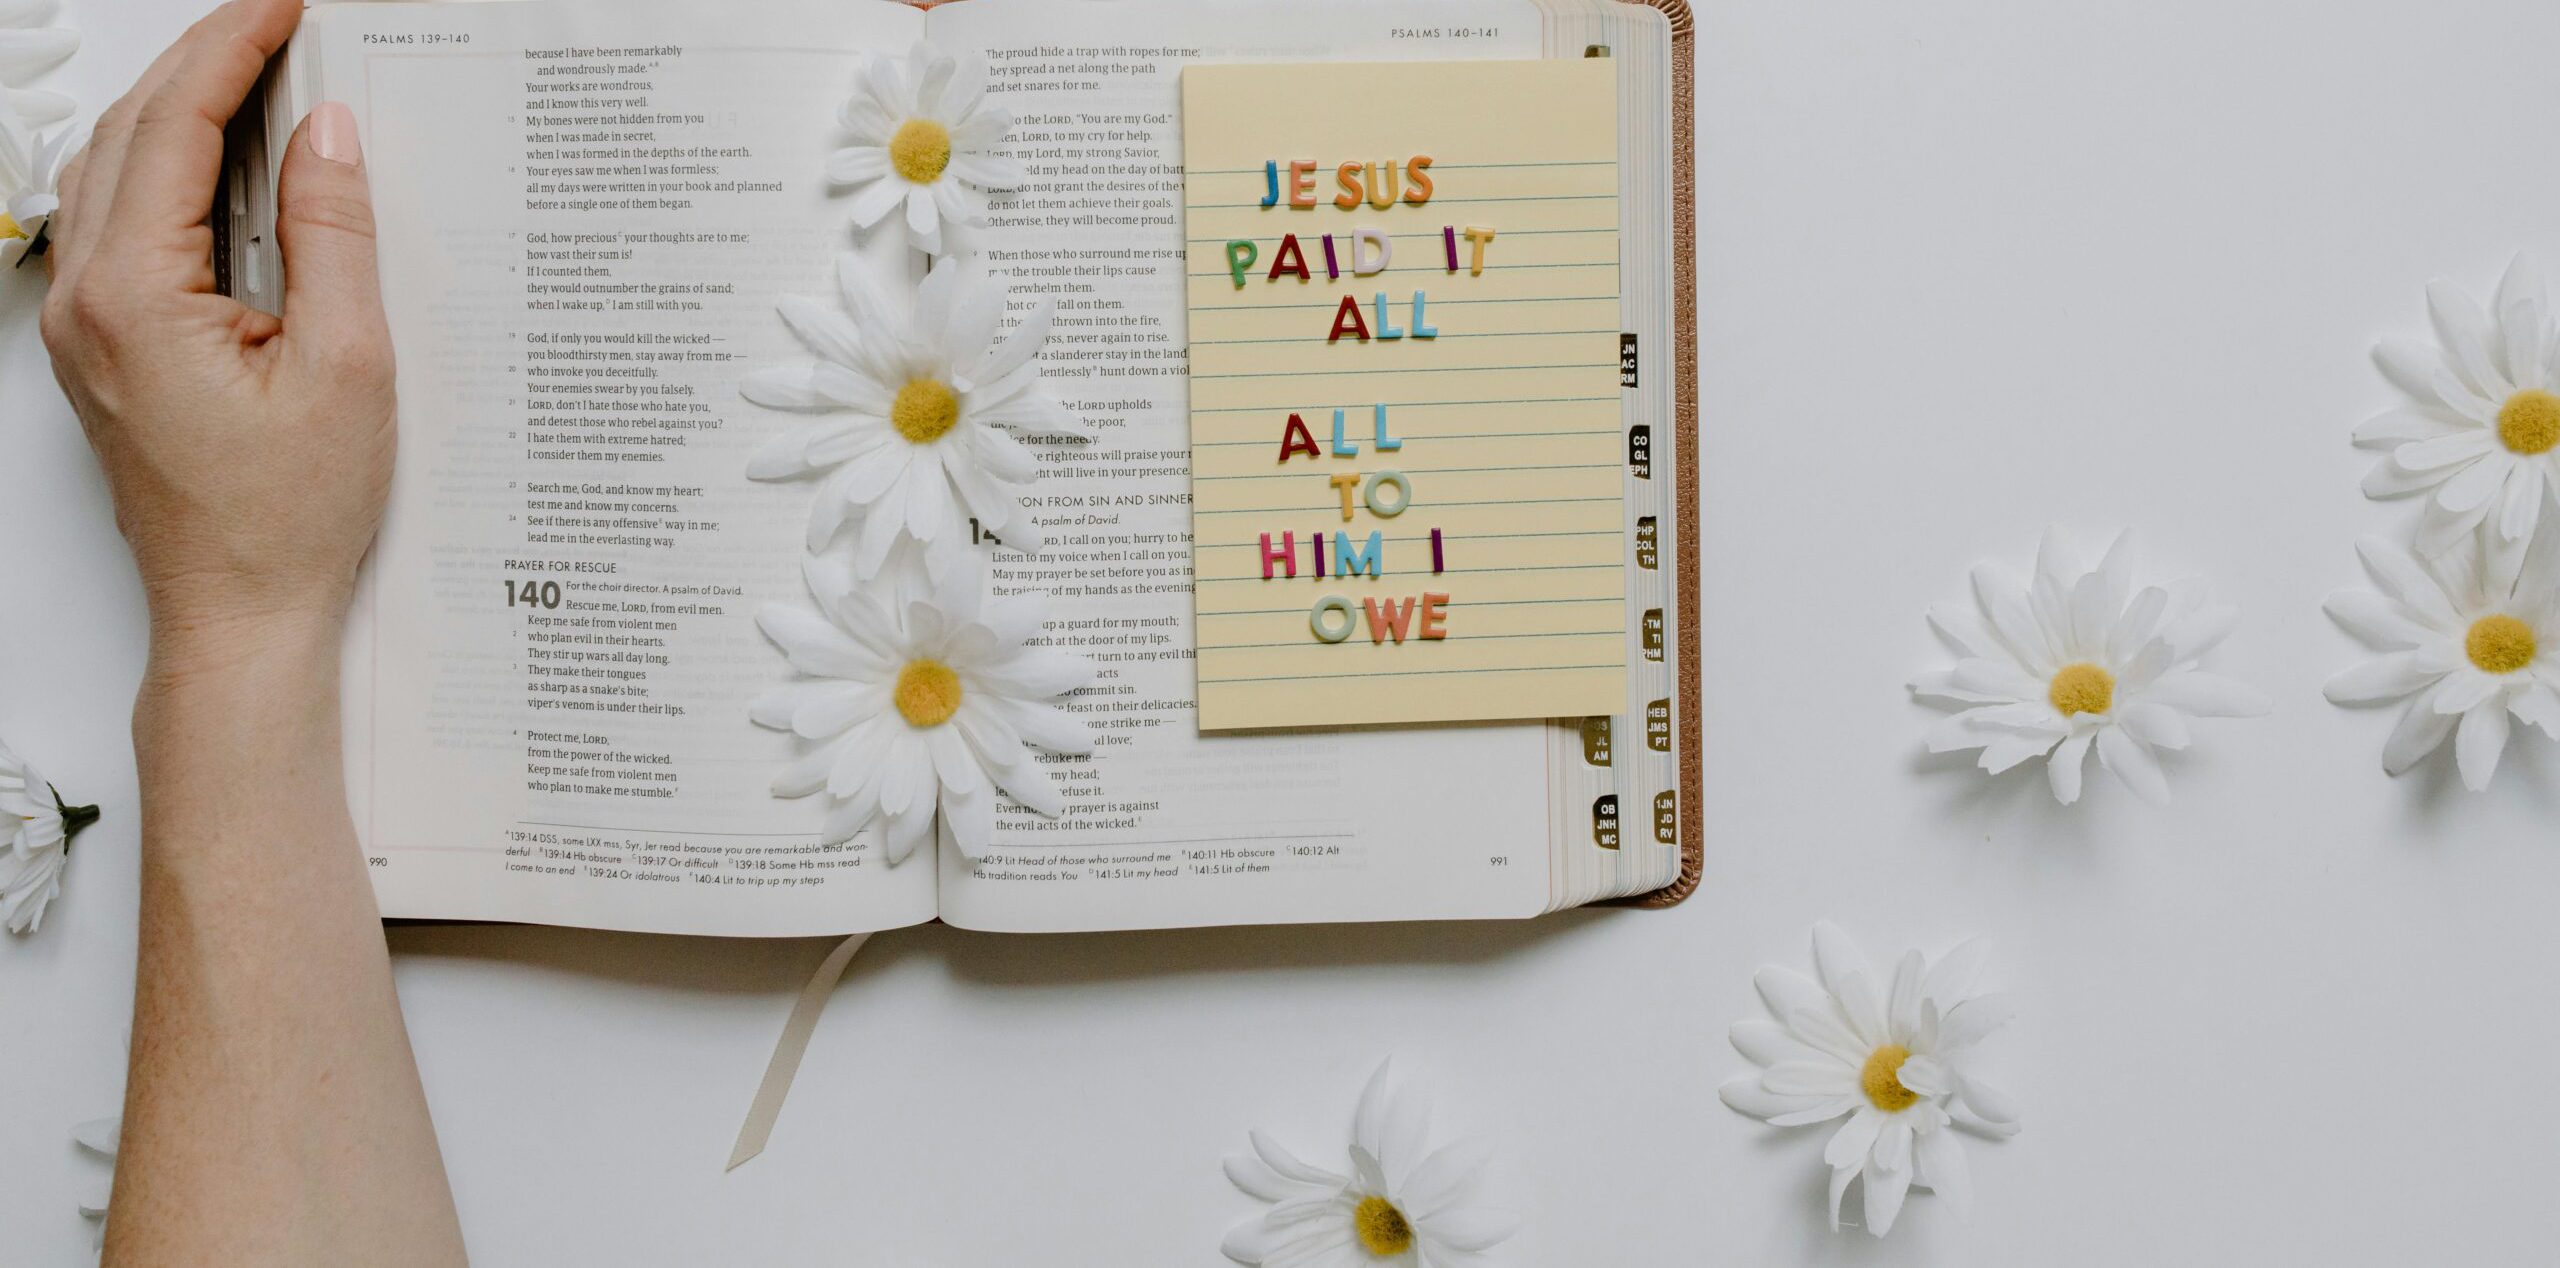 PSALMS 139–140
because I have been remarkably
and wondrously made.
Your works are wondrous,
and I know this very well.
15 My bones were not hidden from you
when I was made in secret,
when I was formed in the depths of the earth.
16 Your eyes saw me when I was formless;
all my days were written in your book and planned
before a single one of them began.
17 God, how precious your thoughts are to me;
how vast their sum is!
18 If I counted them,
they would outnumber the grains of sand;
when I wake up, I am still with you.
19 God, if only you would kill the wicked —
you bloodthirsty men, stay away from me —
20 who invoke you deceitfully.
Your enemies swear by you falsely.
21 LORD, don't I hate those who hate you,
and detest those who rebel against you?
22 I hate them with extreme hatred;
I consider them my enemies.
23 Search me, God, and know my heart;
test me and know my concerns.
24 See if there is any offensive way in me;
lead me in the everlasting way.
PRAYER FOR RESCUE
140 For the choir director. A psalm of David.
Rescue me, LORD, from evil men.
Keep me safe from violent men
2 who plan evil in their hearts.
They stir up wars all day long.
3 They make their tongues
as sharp as a snake's bite;
viper's venom is under their lips.
4 Protect me, LORD,
from the power of the wicked.
Keep me safe from violent men
who plan to make me stumble.
A 139:14 DSS, some LXX mss, Syr, Jer read because you are remarkable and won-
derful B 139:14 Hb obscure C 139:17 Or difficult D 139:18 Some Hb mss read
I come to an end E 139:24 Or idolatrous F 140:4 Lit to trip up my steps
990
PSALMS 140–141
The proud hide a trap with ropes for me;
hey spread a net along the path
and set snares for me.
to the LORD, "You are my God."
LORD, to my cry for help.
my Lord, my strong Savior,
my head on the day of
do not grant the desires of the
do not let them achieve their goals.
Otherwise, they will become proud.
9 When those who surround me rise
the trouble their lips cause
them.
hot fall on them.
thrown into the fire,
never again to rise.
a slanderer stay in the land
hunt down a
the LORD upholds
the poor,
for the needy.
righteous will praise your
will live in your presence.
FROM SIN AND
A psalm of David.
I call on you; hurry to
Listen to my voice when I call on you.
May my prayer be set before you as
the of my hands as the evening
up a guard for my mouth;
at the door of my lips.
turn to any evil
acts
commit sin.
feast on their delicacies.
one strike me —
love;
rebuke me —
my head;
Even prayer is against
the evil acts of the wicked.
140:9 Lit Head of those who surround me B 140:11 Hb obscure C 140:12 Alt
Hb tradition reads You D 141:5 Lit my head E 141:5 Lit of them
991
JESUS
PAID IT
ALL
ALL
TO
HIM I
OWE
JN
AC
RM
CO
GL
EPH
PHP
COL
TH
TM
TI
PHM
HEB
JMS
PT
1JN
JD
RV
JL
AM
OB
JNH
MC